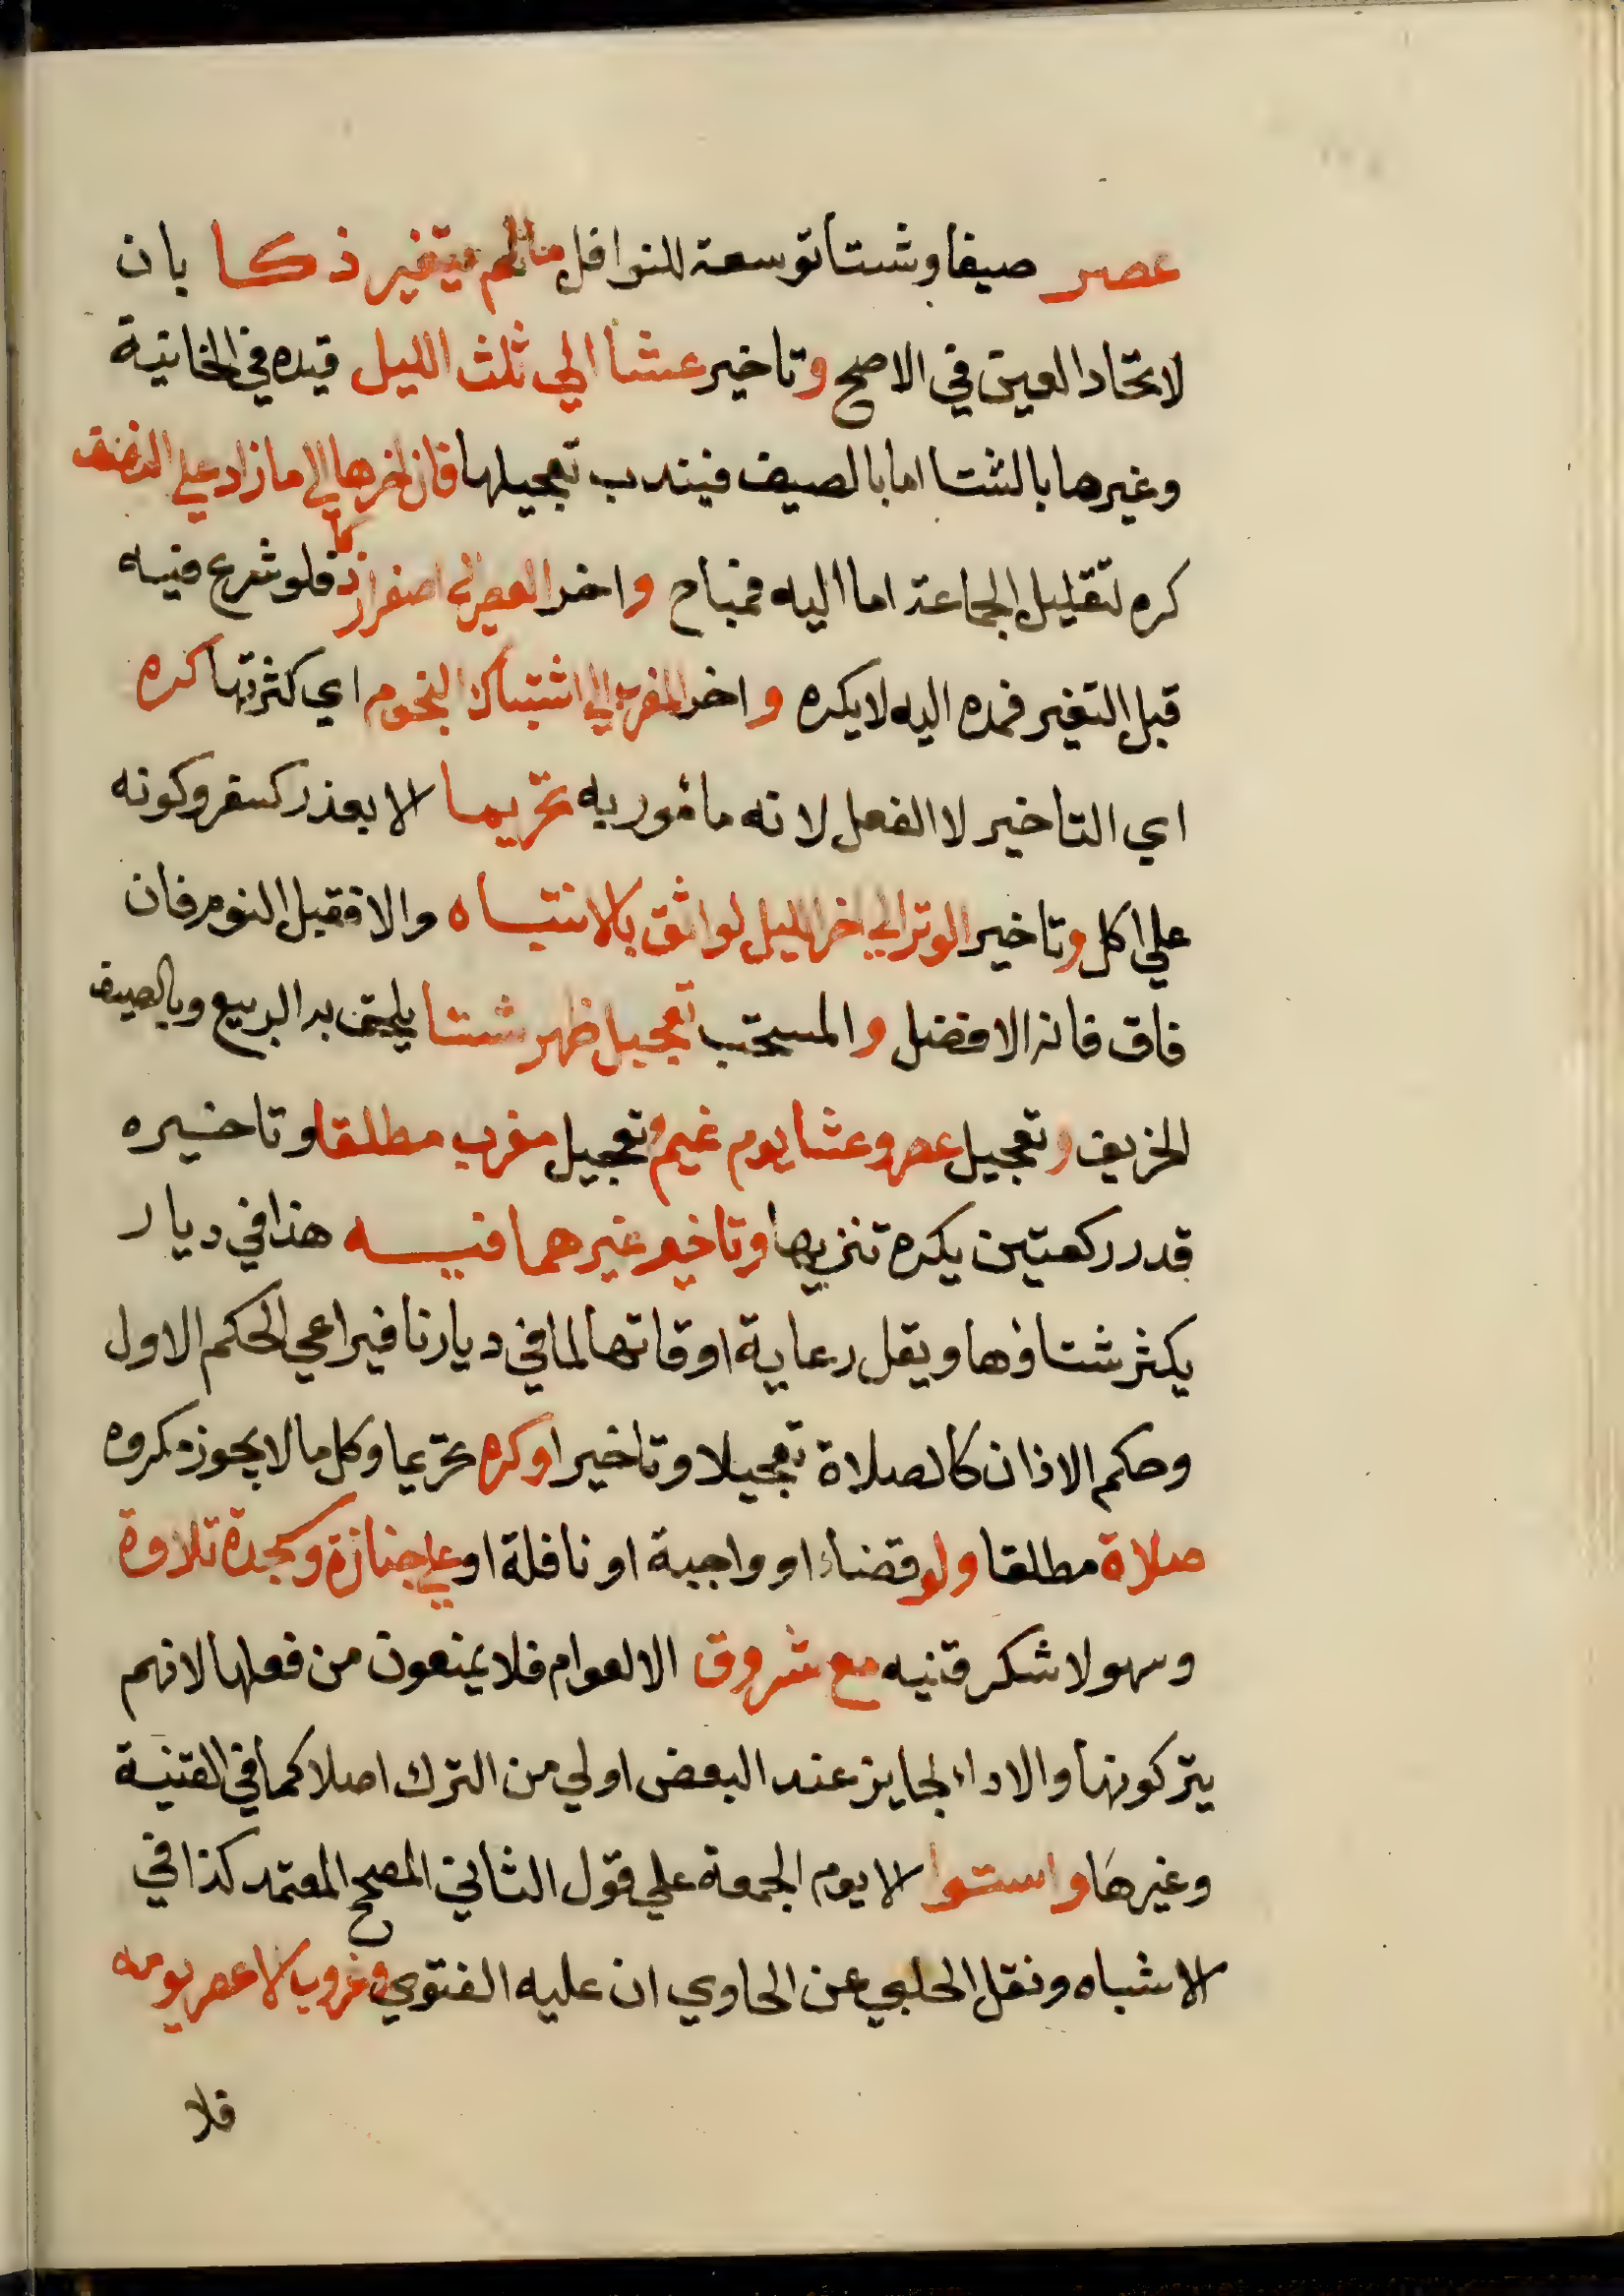 عصر صيفا وشتا توسعة للنوافل ما لم يتغير ذكا بان
لا تحار العين في الاصح وتاخير عشا الي ثلث الليل قيده في الخانية
وغيرها بالشتا اما بالصيف فيندب تعجيلها فان اخرها الي ما زاد علي النصف
كره لتقليل الجماعة اما اليه فمباح واخر العصر الي اصفرار ذكا فلو شرع فيه
قبل التغير فمده اليه لا يكره واخر المغرب الي اشتباك النجوم اي كثرتها كره
اي التاخير لا الفعل لانه مامور به تحريما الا بعذر كسفر وكونه
علي اكل وتاخير الوتر الي اخر الليل لواثق بالانتباه والا فقبل النوم فان
فاق فانه الافضل والمستحب تعجيل ظهر شتا يلحق به الربيع وبالصيف
الخريف وتعجيل عصر وعشا يوم غيم وتعجيل مغرب مطلقا وتاخيره
قدر ركعتين يكره تنزيها وتاخير غيرهما فيه هذا في ديار
يكثر شتاؤها ويقل رعاية اوقاتها اما في ديارنا فيراعي الحكم الاول
وحكم الاذان كالصلاة تعجيلا وتاخيرا وكره تحريما وكل ما لا يجوز مكروه
صلاة مطلقا ولو قضاء او واجبة او نافلة او علي جنازة وسجدة تلاوة
وسهو لا شكر قنيه مع شروق الا العوام فلا يمنعون من فعلها لانهم
يتركونها والاداء الجايز عند البعض اولي من الترك اصلا كما في القنية
وغيرها واستوا الا يوم الجمعة علي قول الثاني المصحح المعتمد كذا في
الاشباه ونقل الحلبي عن الحاوي ان عليه الفتوي وغروب الا عصر يومه
فلا